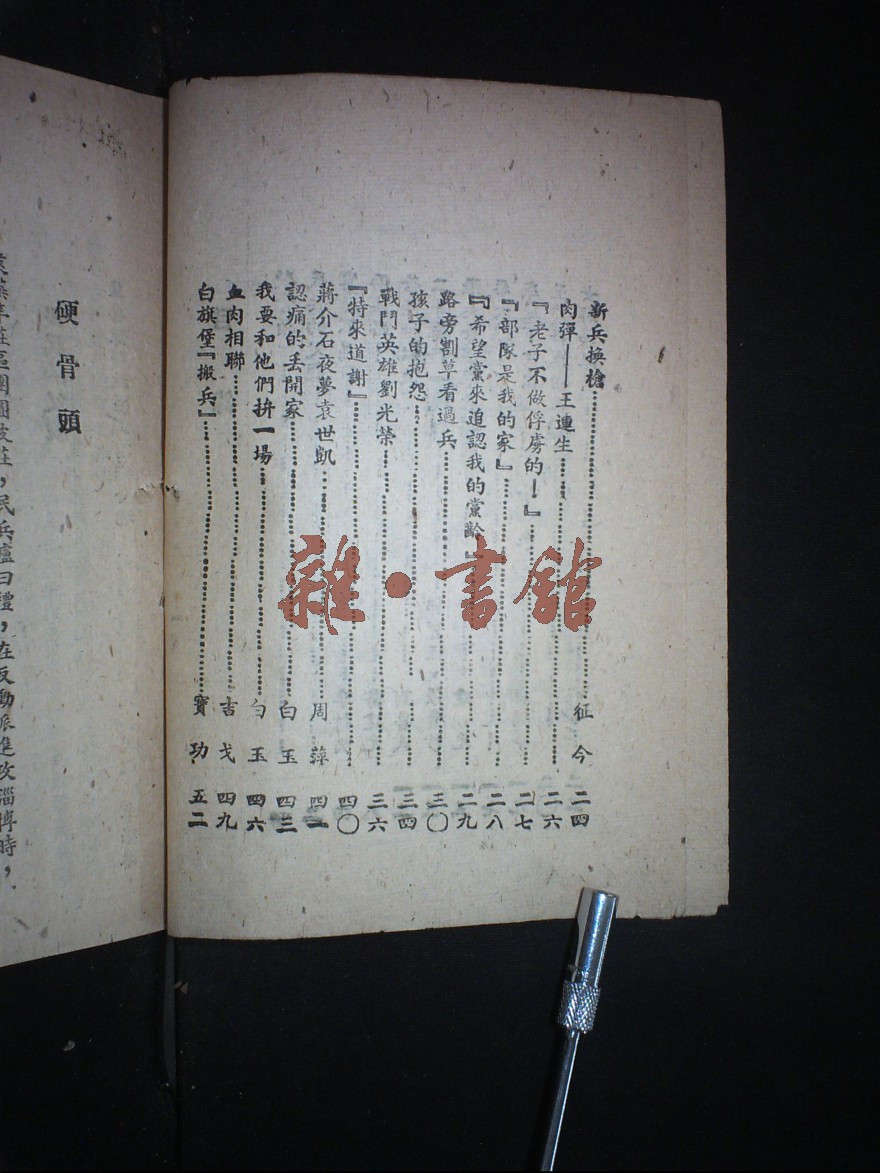 新兵換槍……征今 二四
肉彈——王連生……二六
『老子不做俘虜的！』……二七
『部隊是我的家』……二八
『希望黨來追認我的黨齡』……二九
路旁割草看過兵……三〇
孩子的抱怨……三四
戰鬥英雄劉光榮……三六
『特來道謝』……四〇
蔣介石夜夢袁世凱……周萍 四一
認痛的丢開家……白玉 四三
我要和他們拚一場……白玉 四六
血肉相聯……吉戈 四九
白旗堡『搬兵』……寶功 五二
硬骨頭
民兵盧曰禮，在反動派進攻淄博時，
雜·書館